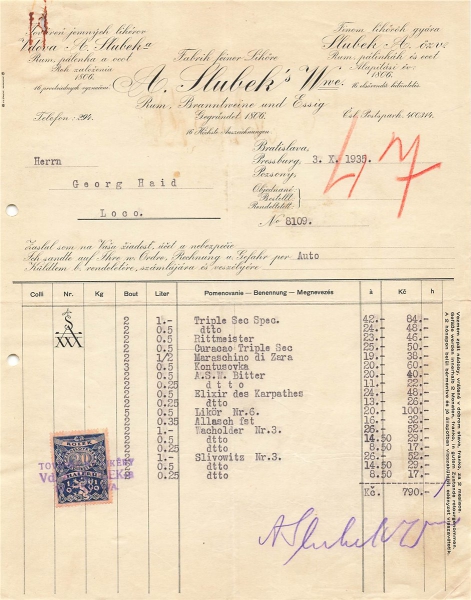 Továreň jemných likérov
Vdova A. Slubek-a
Rum, pálenka a ocot
Rok založenia
1806.
16 prvotriednych vyznačení
Telefon: 294.
Fabrik feiner Liköre
A. Slubek's Wwe.
Rum, Branntweine und Essig
Gegründet 1806.
16 Höchste Auszeichnungen
Finom likőrök gyára
Slubek A. özv.
Rum, pálinkák és ecet
Alapítási év
1806.
16 elsőrendű kitüntetés
Čsl. Postsparh. 400314.
Bratislava,
Pressburg 3. X. 1935.
Pozsony,
Herrn
Georg Haid
Loco.
Objednané
Bestellt
Rendeltetett
No 8109.
47
Zaslal som na Vašu žiadosť, účet a nebezpečie
Ich sandte auf Ihre w. Ordre, Rechnung u. Gefahr per Auto
Küldtem b. rendeletére, számlájára és veszélyére
Colli Nr. Kg Bout Liter Pomenovanie - Benennung - Megnevezés à Kč h
2 1.- Triple Sec Spec. 42.- 84.-
2 0.5 dtto 24.- 48.-
2 0.5 Rittmeister 23.- 46.-
2 0.5 Curacao Triple Sec 25.- 50.-
2 1/2 Maraschino di Zara 19.- 38.-
3 0.5 Kontusovka 20.- 60.-
2 0.5 A.S.W. Bitter 20.- 40.-
2 0.25 dtto 11.- 22.-
2 0.5 Elixir des Karpathes 24.- 48.-
2 0.25 dtto 13.- 26.-
5 0.5 Likör Nr.6. 20.- 100.-
2 0.35 Allasch íst 16.- 32.-
2 1.- Wacholder Nr.3. 26.- 52.-
2 0.5 dtto 14.50 29.-
2 0.25 dtto 8.50 17.-
2 1.- Slivowitz Nr.3. 26.- 52.-
2 0.5 dtto 14.50 29.-
2 0.25 dtto 8.50 17.-
Kč. 790.-
A Slubek Wwe